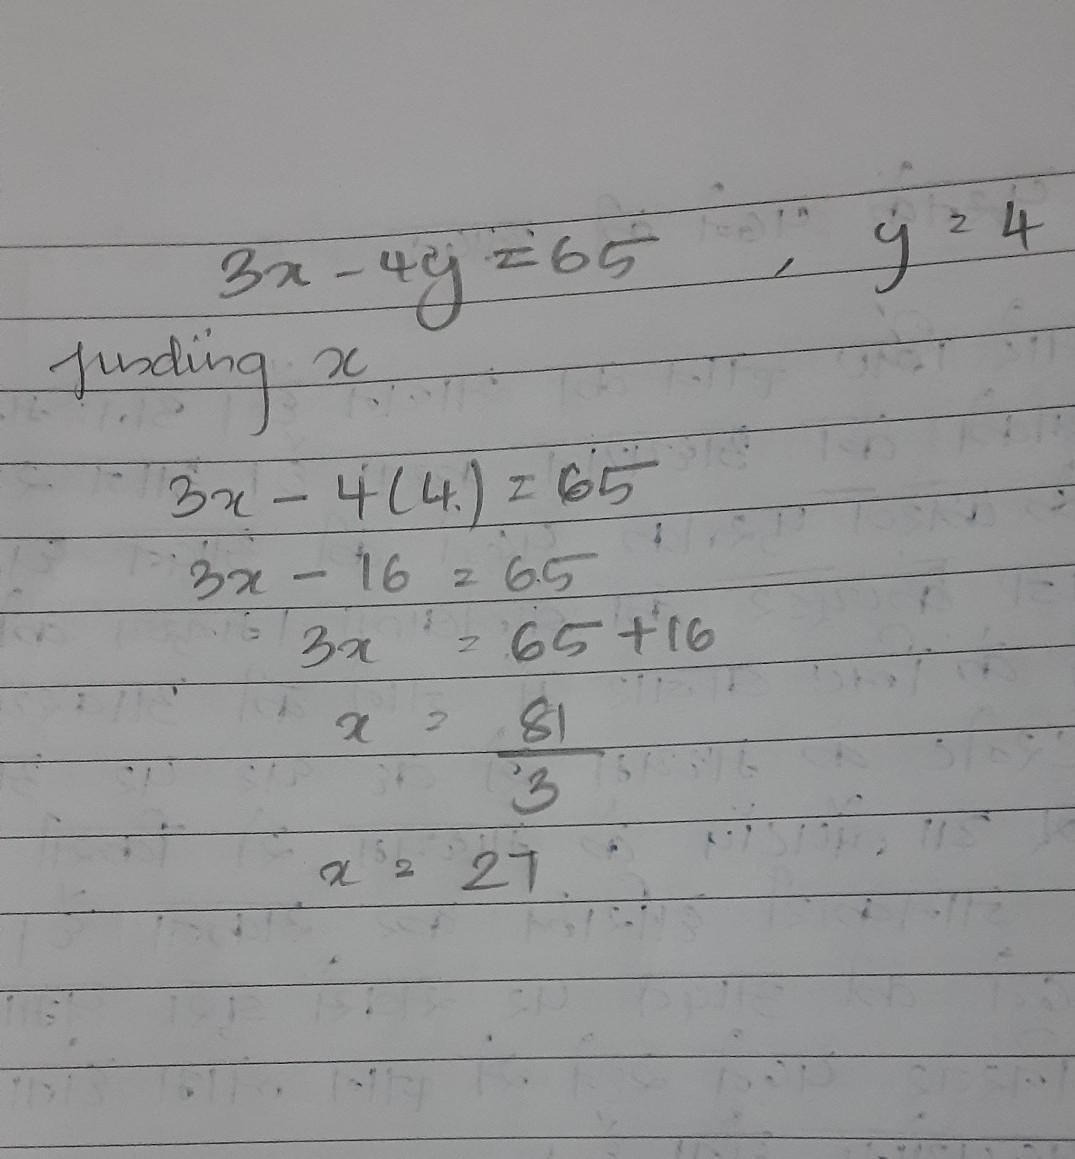 3x - 4y = 65 , y = 4
finding x
3x - 4(4) = 65
3x - 16 = 65
3x = 65 + 16
x = 81
3
x = 27